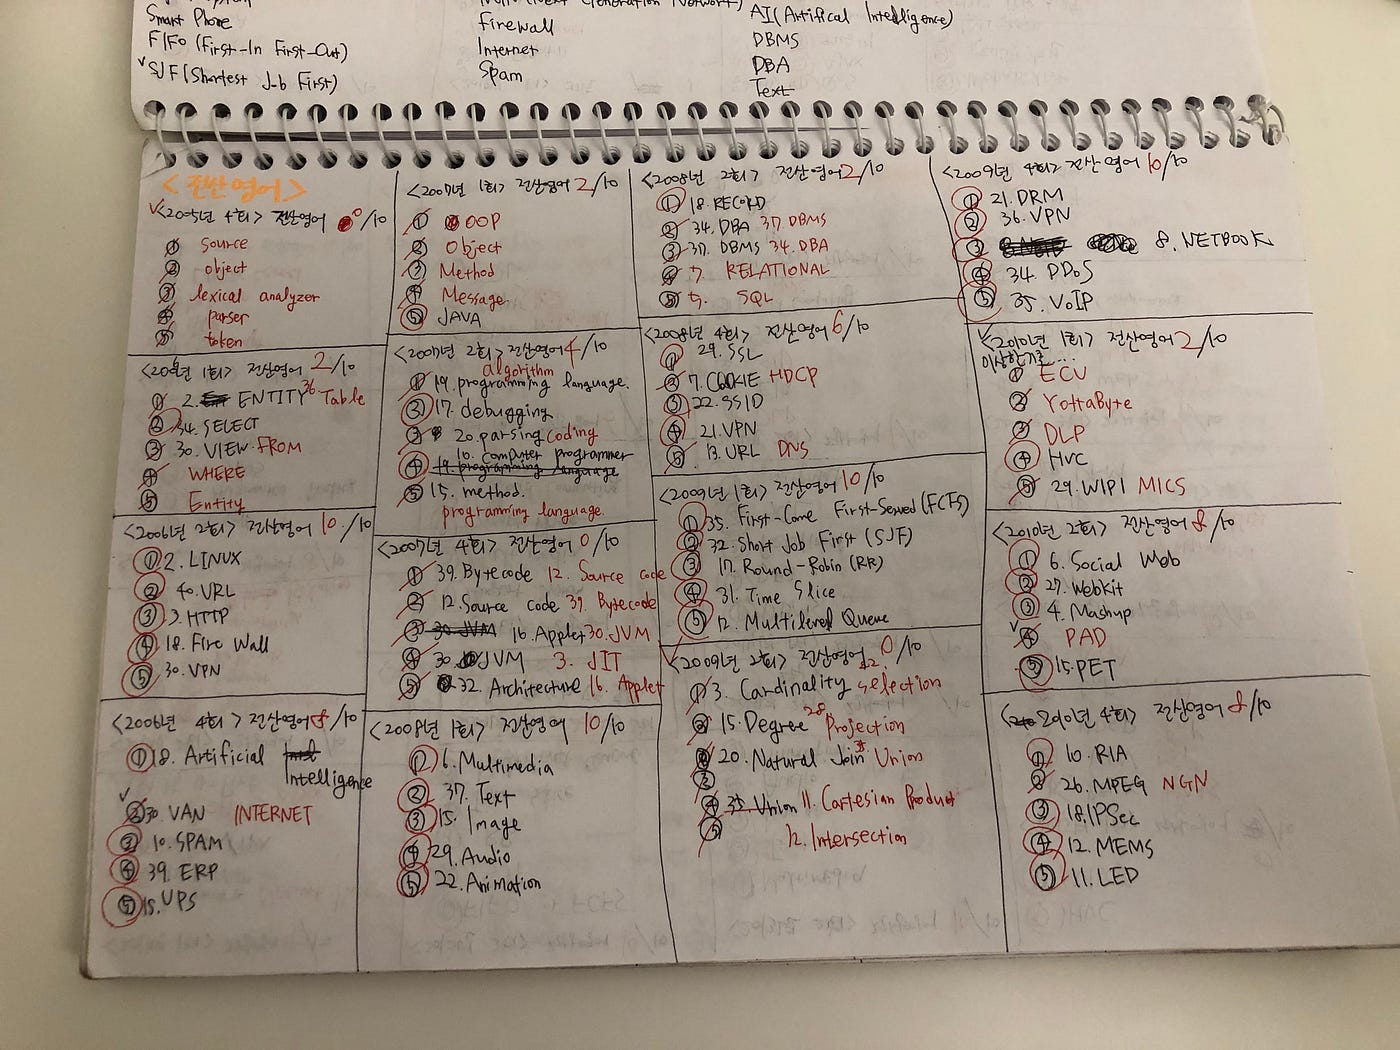 Smart Phone
FIFO (First-In First-Out)
✓SJF (Shortest Job First)
Firewall
Internet
Spam
AI (Artifical Intelligence)
DBMS
DBA
Text
<전산영어>
✓<2005년 4회> 전산영어 0/10
① Source
② object
③ lexical analyzer
④ parser
⑤ token
<2006년 1회> 전산영어 2/10
① 2. ENTITY 36. Table
② 34. SELECT
③ 30. VIEW FROM
④ WHERE
⑤ Entity
<2006년 2회> 전산영어 10/10
① 2. LINUX
② 40. URL
③ 3. HTTP
④ 18. Fire Wall
⑤ 30. VPN
<2006년 4회> 전산영어 8/10
① 18. Artificial
Intelligence
✓② 30. VAN INTERNET
③ 10. SPAM
④ 39. ERP
⑤ 15. UPS
<2007년 1회> 전산영어 2/10
① OOP
② Object
③ Method
④ Message
⑤ JAVA
<2007년 2회> 전산영어 4/10
algorithm
① 19. programming language.
② 17. debugging
③ 20. parsing coding
10. Computer programmer
④ 19. programming language
⑤ 15. method.
programming language.
<2007년 4회> 전산영어 0/10
① 39. Bytecode 12. Source code
② 12. Source code 39. Bytecode
③ 30. JVM 16. Applet 30. JVM
④ 30. JVM 3. JIT
⑤ 32. Architecture 16. Applet
<2008년 1회> 전산영어 10/10
① 6. Multimedia
② 37. Text
③ 15. Image
④ 29. Audio
⑤ 22. Animation
<2008년 2회> 전산영어 2/10
① 18. RECORD
② 34. DBA 37. DBMS
③ 37. DBMS 34. DBA
④ 7. RELATIONAL
⑤ 5. SQL
<2008년 4회> 전산영어 6/10
① 29. SSL
② 7. COOKIE HDCP
③ 22. SSID
④ 21. VPN
⑤ 13. URL DNS
<2009년 1회> 전산영어 10/10
① 35. First-Come First-Served (FCFS)
② 32. Short Job First (SJF)
③ 17. Round-Robin (RR)
④ 31. Time Slice
⑤ 12. Multilevel Queue
✓<2009년 2회> 전산영어 0/10
① 3. Cardinality 22. selection
② 15. Degree 28 Projection
③ 20. Natural Join Union
④ 35. Union 11. Cartesian Product
⑤ 12. Intersection
<2009년 4회> 전산영어 10/10
① 21. DRM
② 36. VPN
③ 8. NETBOOK
④ 34. DDoS
⑤ 35. VoIP
✓<2010년 1회> 전산영어 2/10
① ECU
② YottaByte
③ DLP
④ HVC
⑤ 29. WIPI MICS
<2010년 2회> 전산영어 8/10
① 6. Social Web
② 27. Webkit
③ 4. Mashup
✓④ PAD
⑤ 15. PET
<2010년 4회> 전산영어 8/10
① 10. RIA
② 26. MPEG NGN
③ 18. IPSec
④ 12. MEMS
⑤ 11. LED